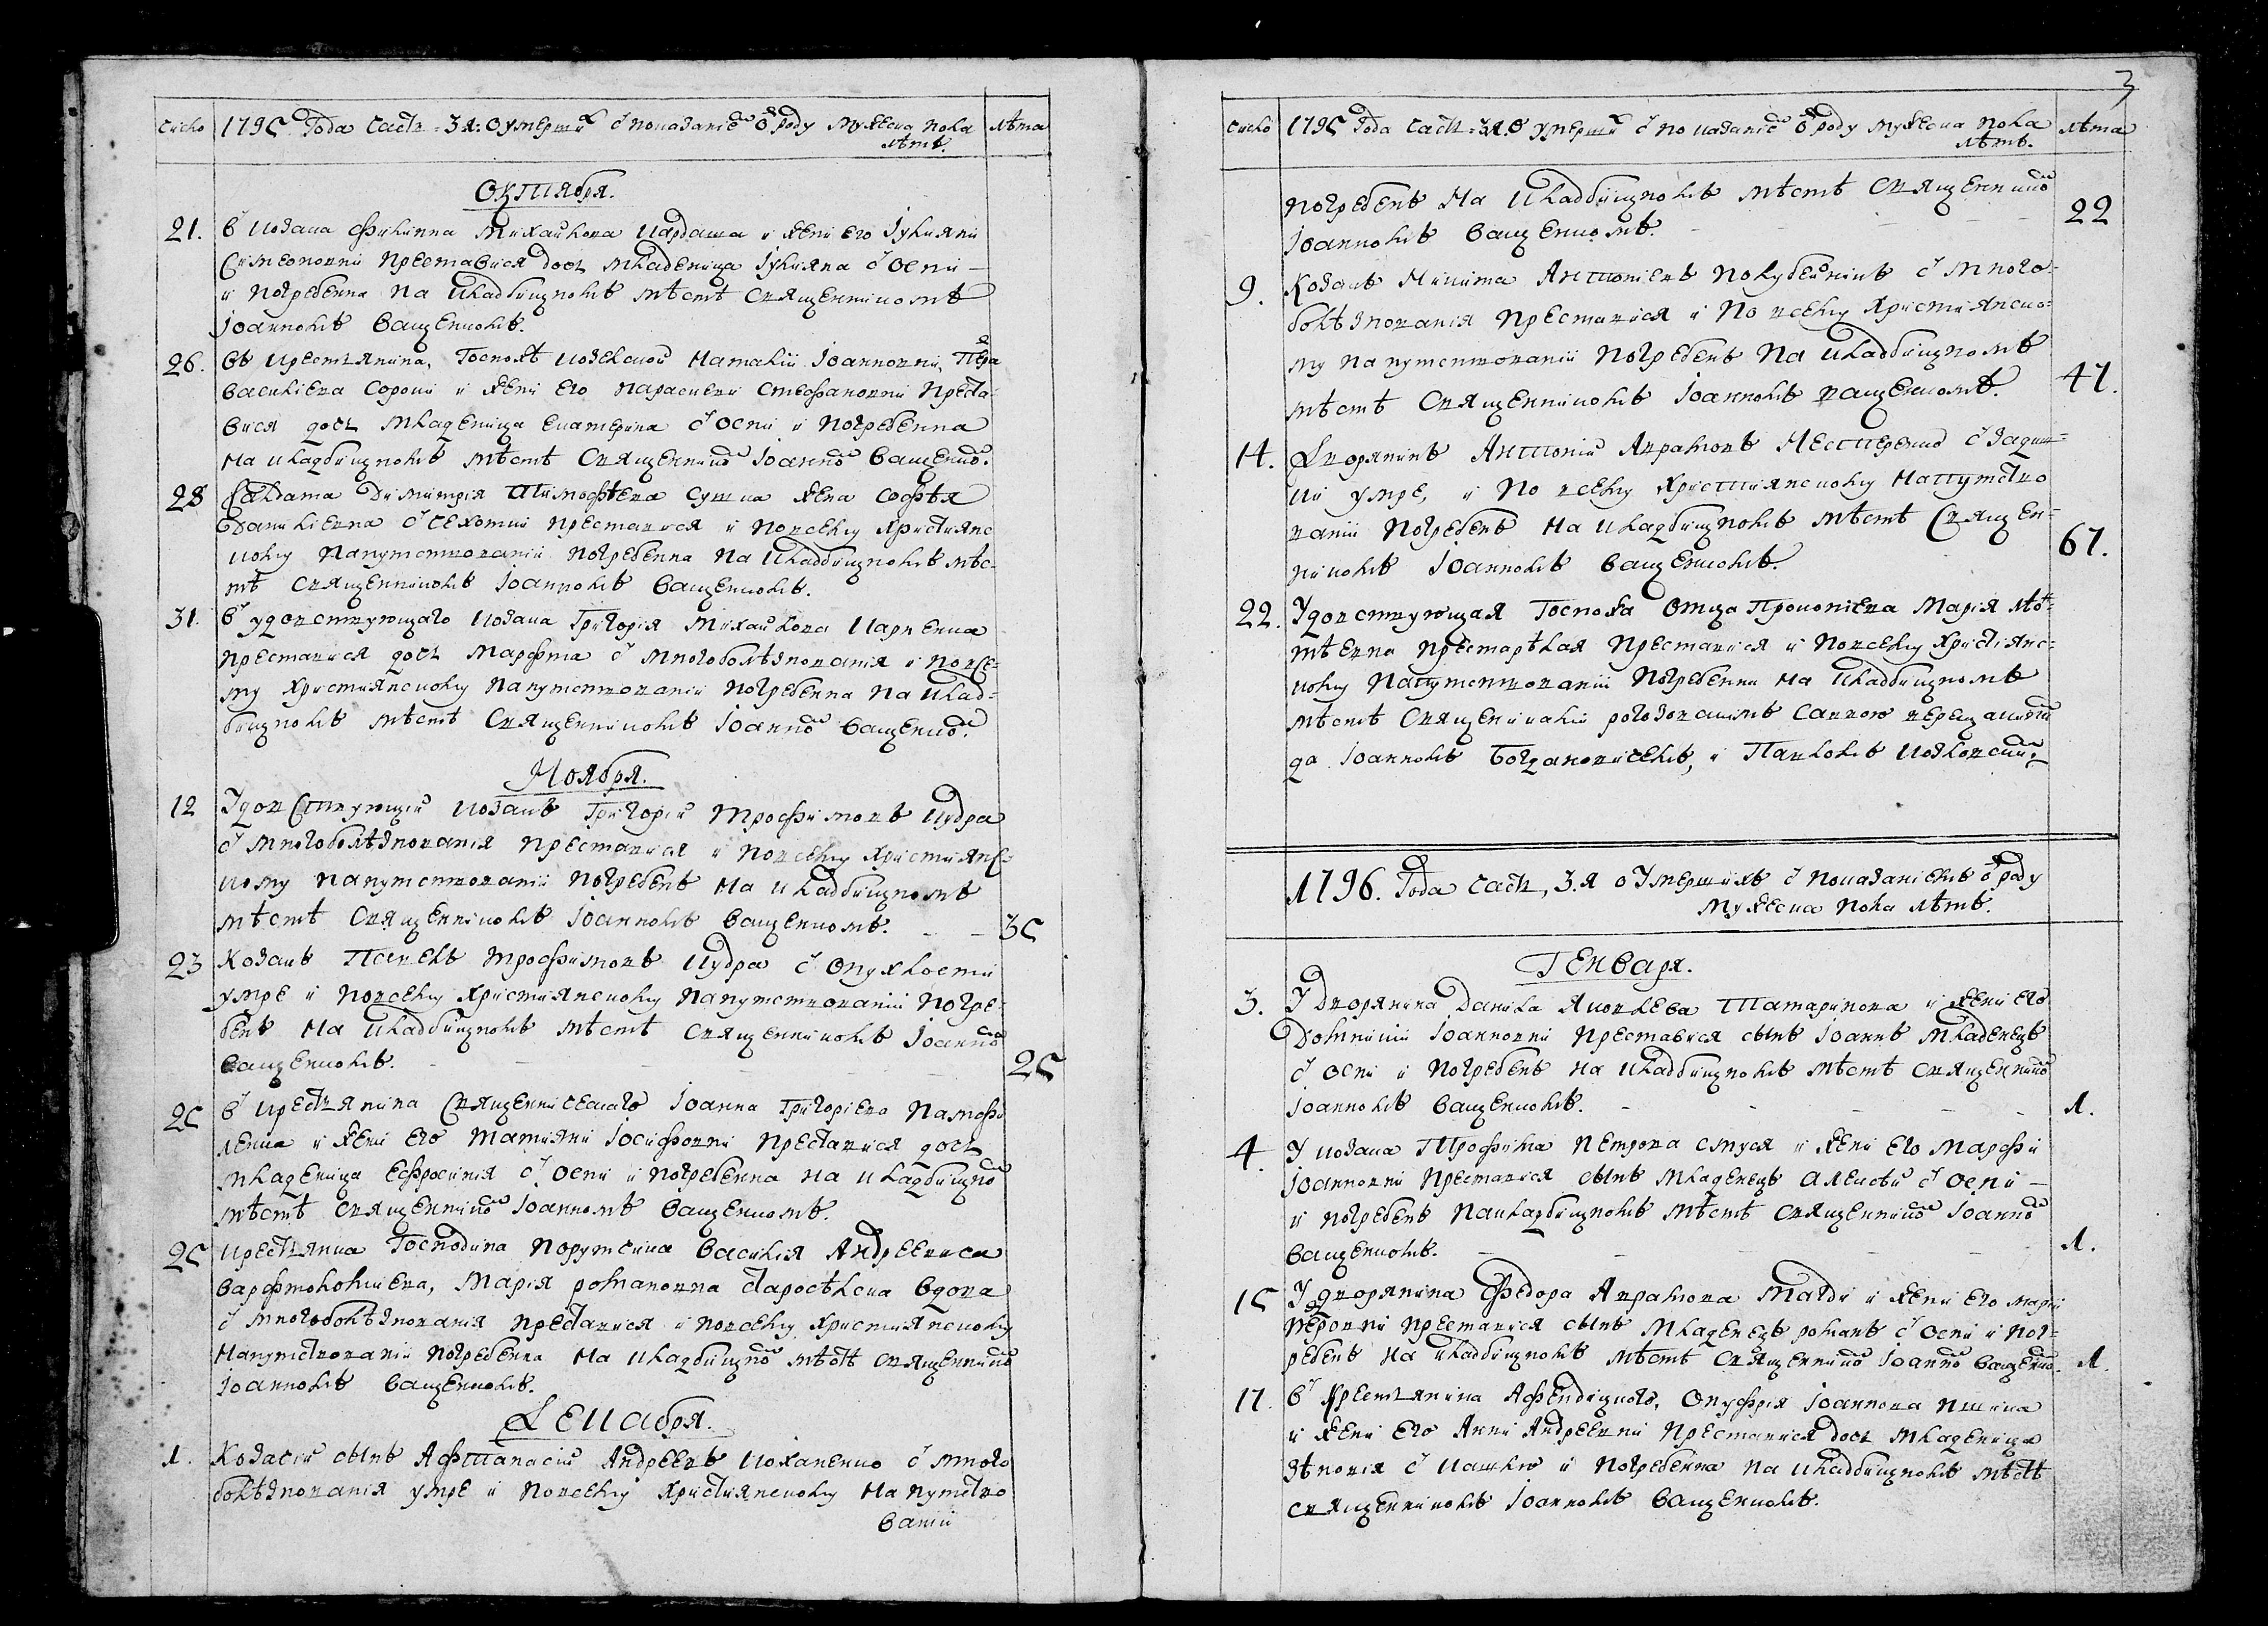 Число 1795 Года Часть 3я: О умерших с показанием от роду мужеска пола лѣтъ. Лѣта
Октября.
21. В козака Филиппа Михайлова Кардаша и жени его Іулиянии
Симеоновни преставися дочь младеница Іулияна от оспи
и погребенна на кладбищномъ мѣстѣ священникомъ
Іоанномъ Ващенкомъ.
26. Въ крестянина, Госпожѣ козелской Наталіи Іоанновни, Петра
Василиева Сороки и жени его Параскеви Стефановни преста-
вися дочь младеница Екатерина от оспи и погребенна
на кладбищномъ мѣстѣ священником Іоанном Ващенком.
28 Солдата Димитрія Тимофѣева жена Софѣя
Даниліевна от чехотки преставися и по всему христианс
кому напутствованіи погребенна на кладбищномъ мѣс-
тѣ священникомъ Іоанномъ Ващенкомъ.
31. В удовствующаго козака Григорія Михайлова
преставися дочь Марфита от многоболѣзнования и по все-
му християнскому напутствованіи погребенна на клад-
бищномъ мѣстѣ священникомъ Іоанном Ващенком.
Ноября.
12 Удовствующій козакъ Григорій Трофимовъ Кудра
от многоболѣзнования преставися и по всему християнс-
кому напутствованіи погребенъ на кладбищномъ
мѣстѣ священникомъ Іоанномъ Ващенкомъ. 35
23 Козакъ Павелъ Трофимовъ Кудра от опухлости
умре и по всему християнскому напутствованіи погре-
бенъ на кладбищномъ мѣстѣ священникомъ Іоанном
Ващенкомъ. 25
25 В крестянина священническаго Іоанна Григоріева Памфи
ленка и жени его Татияни Іосифовни преставися дочь
младеница Ефросинія от оспи и погребенна на кладбищном
мѣстѣ священником Іоанномъ Ващенкомъ.
25 Крестянка Господина порутчика Василія Андреевича
Варфтоломиева, Марія Романовна вдова
от многоболѣзнования преставися и по всему християнскому
напутствованіи погребенна на кладбищном мѣстѣ священником
Іоанномъ Ващенкомъ.
Декабря.
1. Козачій сынъ Афтанасій Андреевъ Коханенко от много
болѣзнования умре и по всему християнскому напутство
ваніи
3
Число 1795 Года Часть 3я. О умерших с показанием от роду мужеска пола лѣтъ. Лѣта
погребенъ на кладбищномъ мѣстѣ священником
Іоанномъ Ващенкомъ. 22
9. Козакъ Никита Антониевъ от много-
болѣзнования преставися и по всему християнско-
му напутствованіи погребенъ на кладбищномъ
мѣстѣ священникомъ Іоанномъ Ващенкомъ. 47.
14. Дворянинъ Антоній Аврамовъ Нестеренко от задиш-
ки умре, и по всему християнскому напутство
ваніи погребенъ на кладбищномъ мѣстѣ священ-
никомъ Іоанномъ Ващенкомъ. 67.
22. Удовствующая Госпожа отца Прокопиева Марія Мат-
тѣевна престарѣлая преставися и по всему християнс-
кому напутствованіи погребенна на кладбищномъ
мѣстѣ священниками
да Іоанномъ Богдановичемъ, и Павломъ
1796. Года Часть, 3.я о Умершихъ с показаниемъ от роду
мужеска пола лѣтъ.
Генваря.
3. У дворянина Данила Яковлева Татаринова и жени его
Домникіи Іоанновни преставися сынъ Іоаннъ младенецъ
от оспи и погребенъ на кладбищномъ мѣстѣ священником
Іоанномъ Ващенкомъ. 1.
4. У козака Трофима Петрова и жени его Марфи
Іоанновни преставися сынъ младенецъ Алексѣй от оспи
и погребенъ на кладбищномъ мѣстѣ священником Іоанном
Ващенкомъ. 1.
15 У дворянина Федора Аврамова и жени его Маріи
преставися сынъ младенецъ Романъ от оспи и пог-
ребенъ на кладбищномъ мѣстѣ священником Іоанном Ващенком. 1.
17. В крестянина Онуфрія Іоаннова
и жени его Анни Андреевни преставися дочь младеница
Зѣновия от кашлю и погребенна на кладбищномъ мѣстѣ
священникомъ Іоанномъ Ващенкомъ.